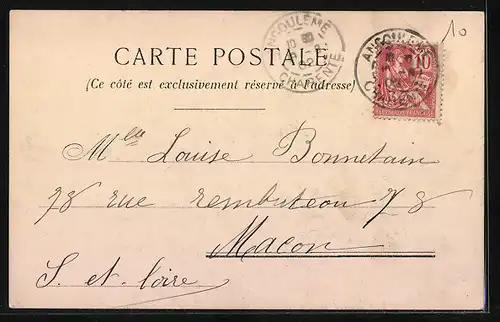 10
ANGOULEME
CHARENTE
ANGOULEME
CHARENTE
10
CARTE POSTALE
(Ce côté est exclusivement réservé à l'adresse)
Mlle Louise Bonnetain
78 rue rembuteau 78
Macon
S. et. loire